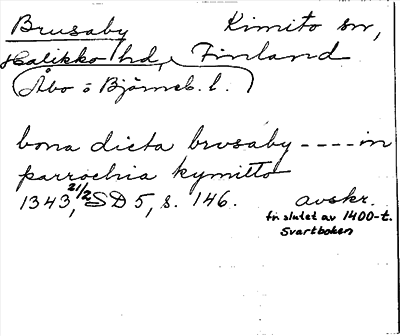 Brusaby Kimito sn,
Halikko hd, Finland
(Åbo o Björneb. l.)
bona dicta brusaby ---- in
parrochia kymitto
1343, 21/2 SD 5, s. 146. avskr.
fr slutet av 1400-t.
Svartboken